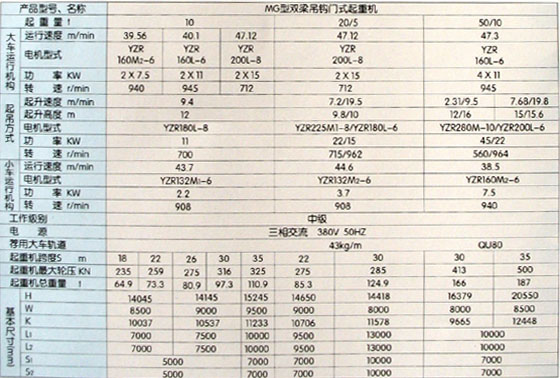 产品型号、名称 MG型双梁吊钩门式起重机
起重量 t 10 20/5 50/10
大车运行机构
运行速度 m/min 39.56 40.1 47.12 47.12 47.3
电机型式 YZR 160M2-6 YZR 160L-6 YZR 200L-8 YZR 200L-8 YZR 160L-6
功率 KW 2X7.5 2X11 2X15 2X15 4X11
转速 r/min 940 945 712 712 945
起吊方式
起升速度 m/min 9.4 7.2/19.5 2.31/9.5 7.68/19.8
起升高度 m 12 9.8/10 12/16 15/15.6
电机型式 YZR180L-8 YZR225M1-8/YZR180L-6 YZR280M-10/YZR200L-6
功率 KW 11 22/15 45/22
转速 r/min 700 715/962 560/964
小车运行机构
运行速度 m/min 43.7 44.6 38.5
电机型式 YZR132M1-6 YZR132M2-6 YZR160M2-6
功率 KW 2.2 3.7 7.5
转速 r/min 908 908 940
工作级别 中级
电源 三相交流 380V 50HZ
荐用大车轨道 43kg/m QU80
起重机跨度S m 18 22 26 30 35 22 30 30 35
起重机最大轮压 KN 235 259 275 316 325 275 285 413 500
起重机总重量 t 64.9 73.3 80.9 97.3 110.9 85.3 124.9 166 187
基本尺寸(mm)
H 14045 14145 15245 14650 14418 16379 20550
W 8500 9000 9500 9000 8000 8000 8500
K 10037 10537 11233 10706 11578 9665 12448
L1 7000 7500 10000 9500 13000 10000
L2 7000 7500 10000 9500 13000 10000
S1 5000 7000 7000 10000 10000
S2 5000 7000 7000 10000 10000